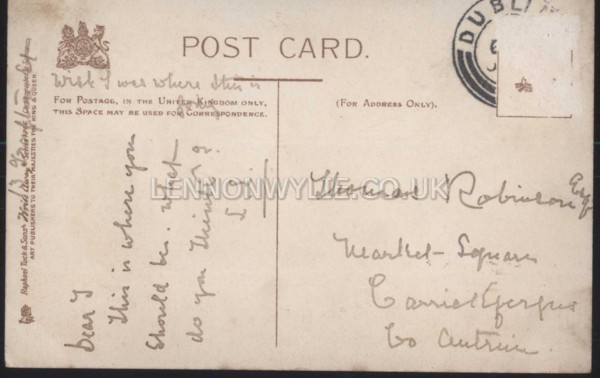 POST CARD.
DUBLIN
Wish I was where this is
FOR POSTAGE, IN THE UNITED KINGDOM ONLY,
THIS SPACE MAY BE USED FOR CORRESPONDENCE.
(FOR ADDRESS ONLY).
Dear T
This is where you
should be. What
do you think?
LENNONWYLIE.CO.UK
Thomas Robinson Esq
Market-Square
Carrickfergus
Co Antrim.
Raphael Tuck & Sons'
ART PUBLISHERS TO THEIR MAJESTIES THE KING & QUEEN